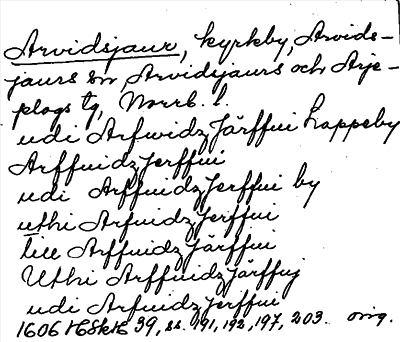 Arvidsjaur, kyrkby, Arvids-
jaurs sn Arvidsjaurs och Arje-
plogs tg, Norrb. l.
udi Arfwidz Järffui Lappeby
Arffuidz Jerffui
udi Arffuidz Jerffui by
uthi Arfuidz Jerffui
till Arffuidz Järffui
Uthi Arffuidz Järffuj
udi Arfuidz Jerffui
1606 39, ss. 191, 192, 197, 203. orig.